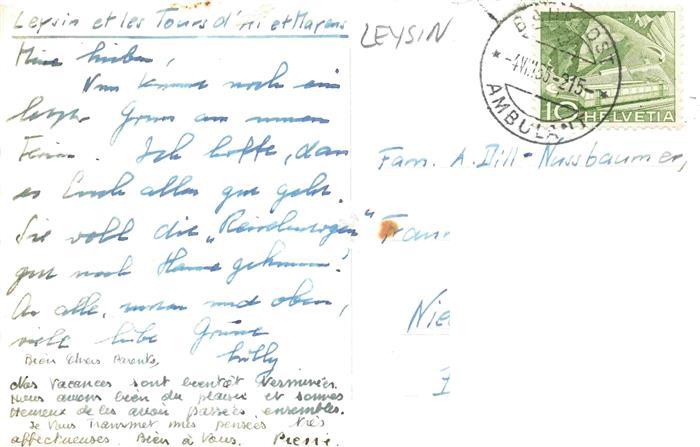 Leysin et les Tours d'Aï et Mayens
LEYSIN
Meine lieben,
Nun kommt noch ein
letzter Gruss aus unsern
Ferien. Ich hoffe, dass
es Euch allen gut geht.
Sie wohl die
gut nach Hause gekommen?
An alle, unten und oben,
viele liebe Grüsse
Willy
Bien chers Parents,
Nos vacances sont bientôt terminées.
Nous avons bien du plaisir et sommes
heureux de les avoir passées ensembles.
Je vous transmet mes pensées très
affectueuses. Bien à vous. Pierre
AMBULANT
10
HELVETIA
Fam. A. Dill-Nussbaumer,